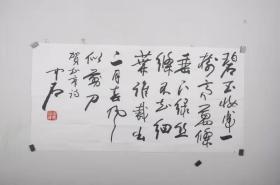 碧玉妝成一
樹高萬條
垂下綠絲
絛不知細
葉誰裁出
二月春風
似剪刀
賀知章詩
中石